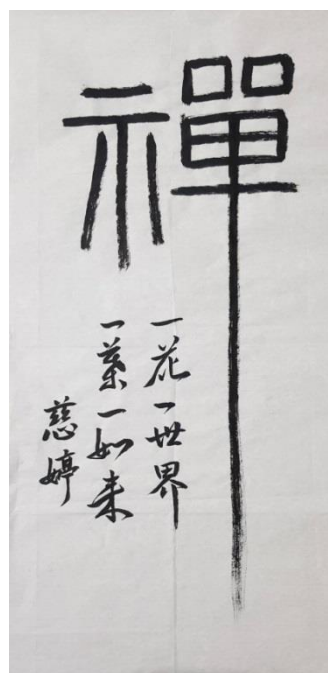 禪
一花一世界
一葉一如来
慈婷